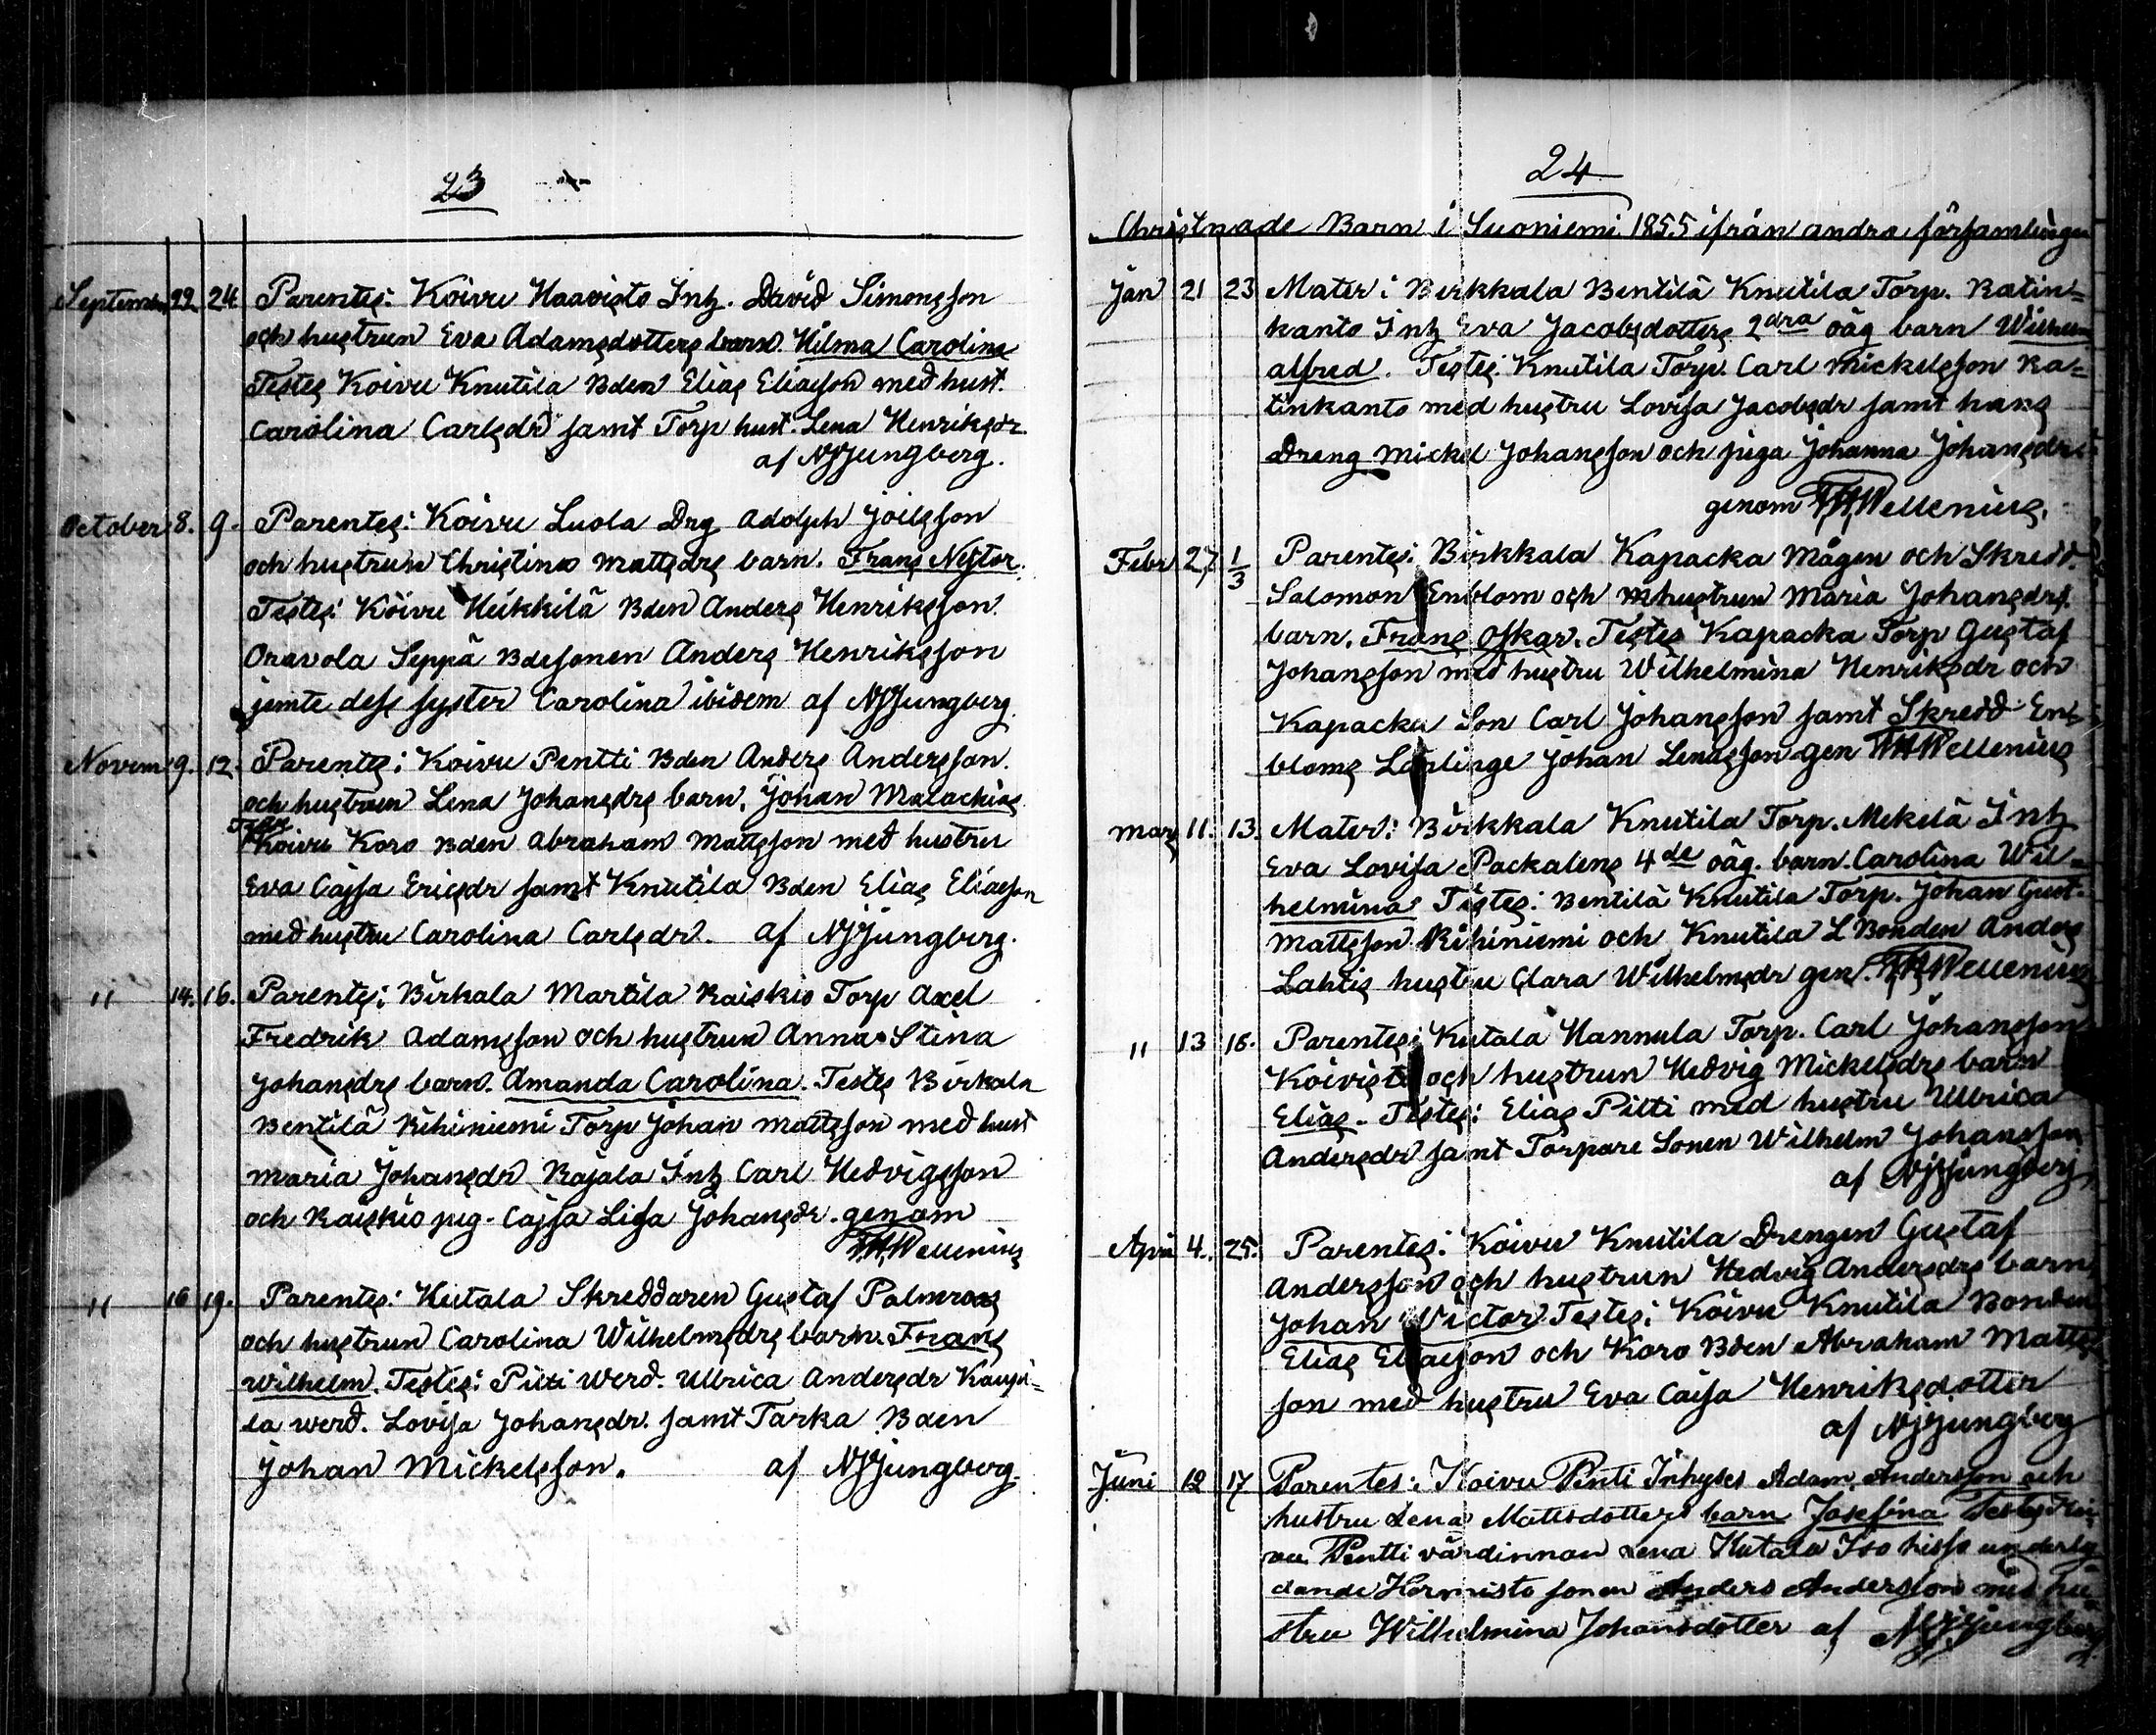 23
September 22 24 Parentes: Koivu Haavisto Inh. David Simonsson
och hustrun Eva Adamsdotters barn. Hilma Carolina
Testes Koivu Knutila Bden Elias Eliasson med hust.
Carolina Carlsdr samt Torp hust. Lena Henriksdr
af NJjungberg.
October 8. 9. Parentes: Koivu Luola Drg Adolph Joilsson
och hustrun Christina Mattsdrs barn. Frans Nestor.
Testes: Koivu Heikkilä Bden Anders Henriksson
Oravola Seppä Bdesonen Anders Henriksson
jemte dess syster Carolina ibidem af NJjungberg
Novem 9. 12. Parentes: Koivu Pentti Bden Anders Andersson.
och hustrun Lena Johansdrs barn. Johan Malachias
Koivu Koro Bden Abraham Mattsson med hustru
Eva Cajsa Ericsdr samt Knutila Bden Elias Eliasson
med hustru Carolina Carlsdr. af NJjungberg.
" 14. 16. Parentes: Birkala Martila Kaiskio Torp Axel
Fredrik Adamsson och hustrun Anna Stina
Johansdrs barn. Amanda Carolina. Testes Birkala
Bentilä Kihiniemi Torp Johan Mattsson med hust
Maria Johansdr Rajala Inh Carl Hedvigsson
och Kaiskio pig. Cajsa Lisa Johansdr. genom
Wellenius
" 16 19. Parentes: Kutala Skreddaren Gustaf Palmroos
och hustrun Carolina Wilhelmsdrs barn. Frans
Wilhelm. Testes: Pitti Werd. Ulbrica Andersdr Kaupi=
la werd. Lovisa Johansdr. samt Tarka Bden
Johan Mickelsson. af NJjungberg.
24
Christnade Barn i Suoniemi 1855 ifrån andra församlingar
Jan 21 23 Mater: Birkkala Bentilä Knutila Torp. Katin=
kanto Inh Eva Jacobsdotters 2dra oäg barn Wilhelm
Alfred. Testes: Knutila Torp. Carl Mickelsson Ka=
tinkanto med hustru Lovisa Jacobsdr samt hans
Dreng Mickel Johansson och piga Johanna Johansdr
genom Wellenius.
Febr 27 1/3 Parentes: Birkkala Kapacka Mågen och Skredd.
Salomon Enblom och hustrun Maria Johansdrs
barn. Frans Oskar. Testes Kapacka Torp Gustaf
Johansson med hustru Wilhelmina Henriksdr och
Kapacka Son Carl Johansson samt Skredd En=
bloms Lärlinge Johan gen Wellenius
Mars 11. 13. Mater: Birkkala Knutila Torp. Mekelä Inh
Eva Lovisa Packalens 4de oäg. barn. Carolina Wil=
helmina Testes: Bentilä Knutila Torp. Johan Gust.
Mattsson Kihiniemi och Knutila L Bonden Anders
Lahtis hustru Clara Wilhelmsdr gen. Wellenius
" 13 16. Parentes: Kutala Hannula Torp. Carl Johansson
Koivisto och hustrun Hedvig Mickelsdrs barn
Elias. Testes: Elias Pitti med hustru Ulbrica
Andersdr samt Torpare Sonen Wilhelm Johansson
af NJjungberg
April 4. 25. Parentes: Koivu Knutila Drengen Gustaf
Andersson och hustrun Hedvig Andersdrs barn
Johan Victor. Testes: Koivu Knutila Bonden
Elias Eliasson och Koro Bden Abraham Matts
son med hustru Eva Caisa Henriksdotter
af NJjungberg
Juni 12 17 Parentes: Koivu Penti Inhyses Adam Andersson och
hustru Lena Mattsdotters barn Josefina Testes Koi
vu Pentti värdinnan Lena Kutala Iso hissa underly
dande Hormisto sonen Anders Andersson med hu
stru Wilhelmina Johansdotter af NJjungberg